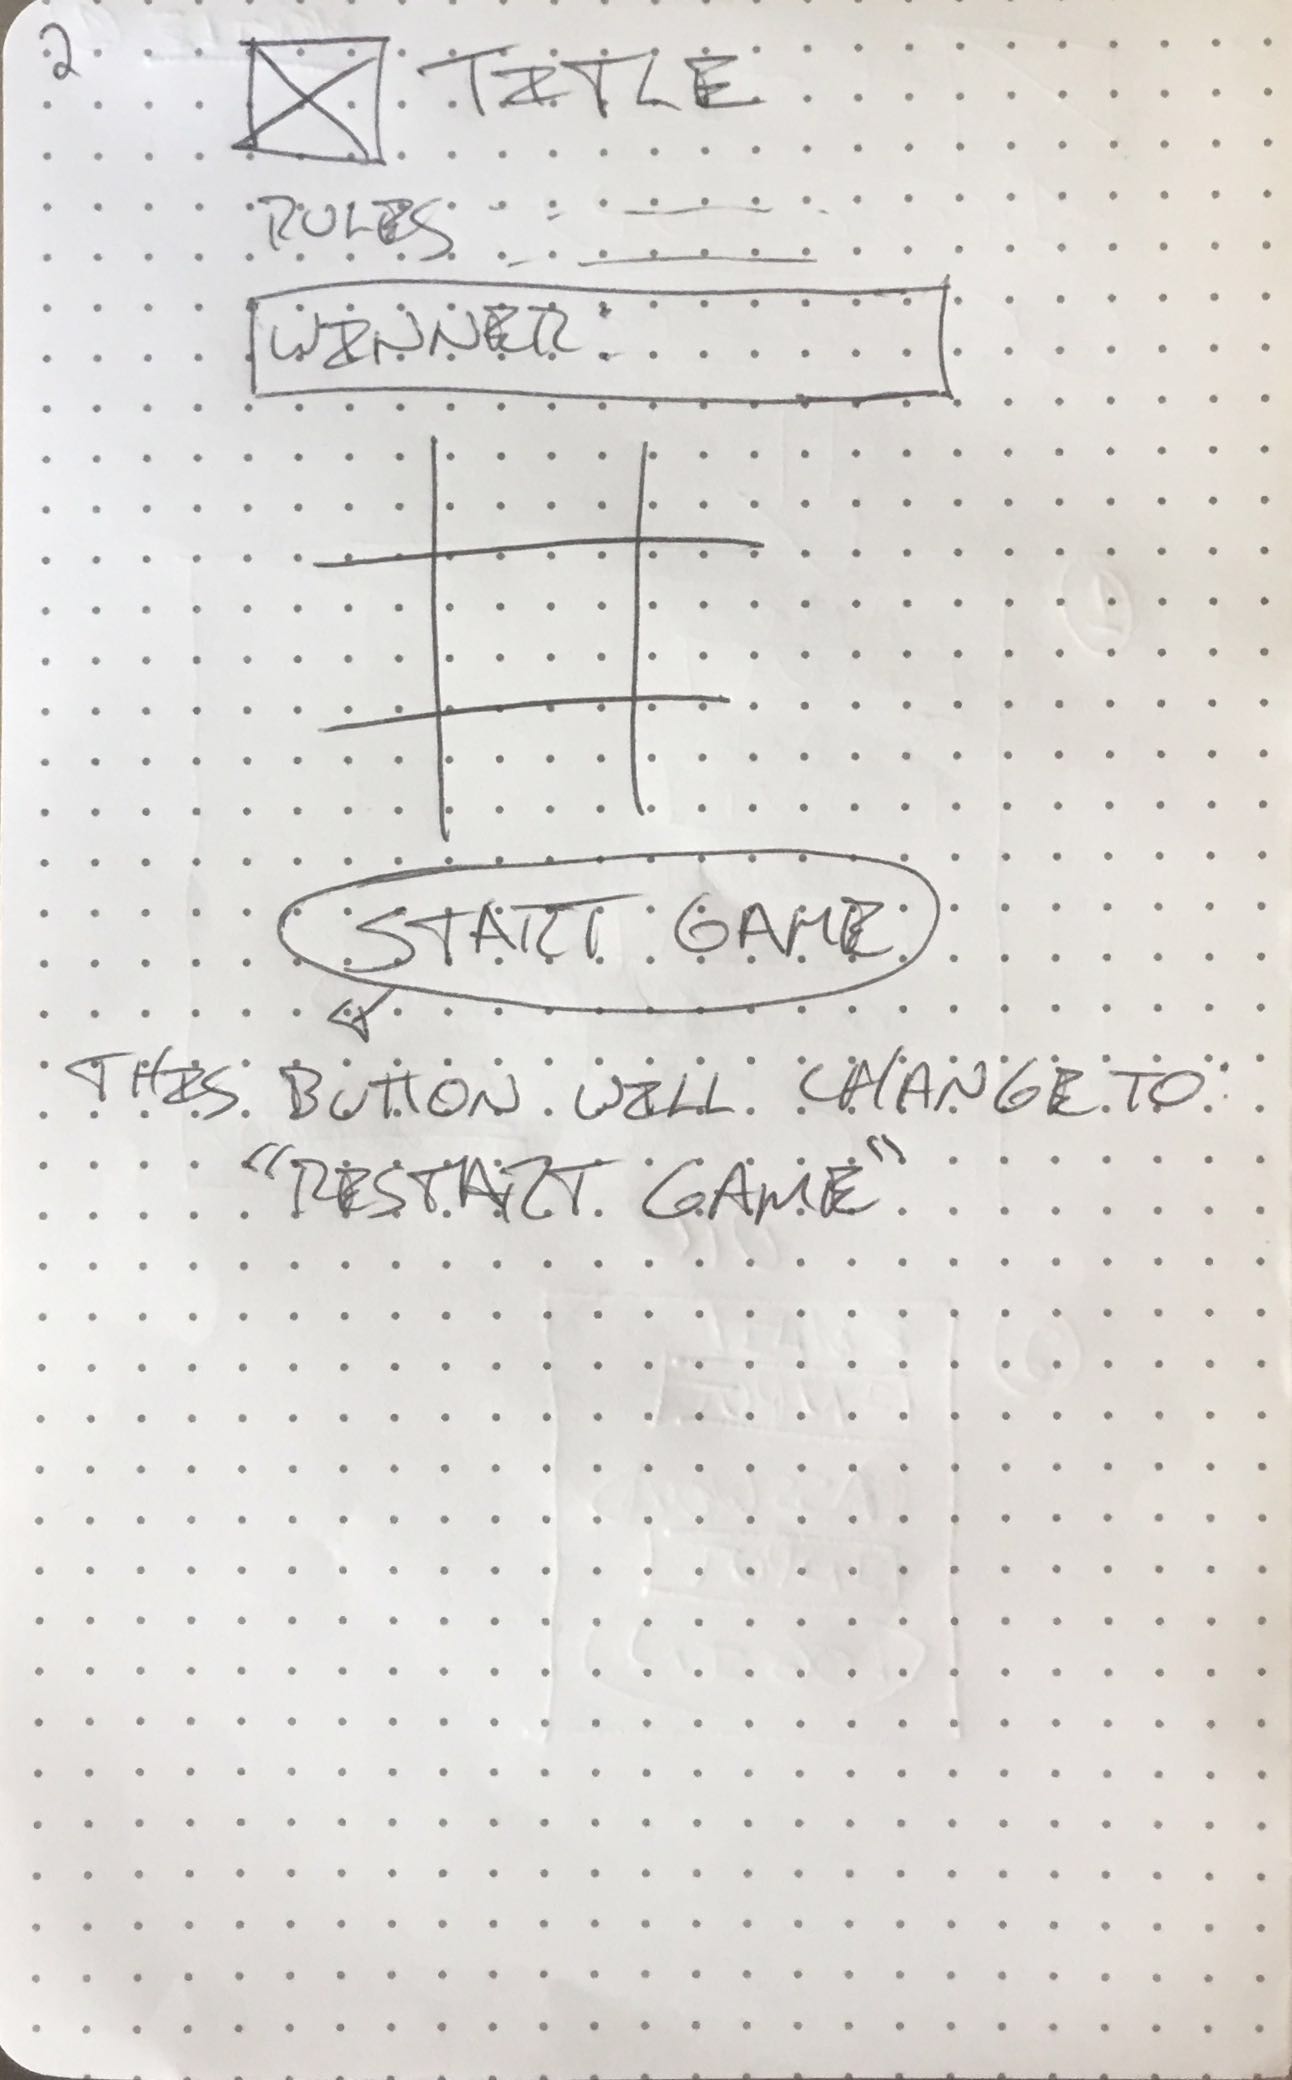 2
TITLE
RULES
WINNER:
START GAME
THIS BUTTON WILL CHANGE TO:
"RESTART GAME"